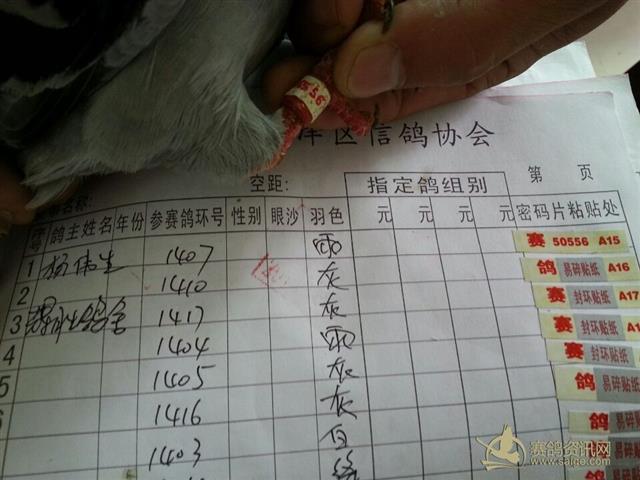 56
区信鸽协会
空距: 指定鸽组别 第 页
名称:
鸽主姓名 年份 参赛鸽环号 性别 眼沙 羽色 元 元 元 元 密码片粘贴处
1 杨伟生 1407 雨 赛 50556 A15
2 1410 灰 鸽 易碎贴纸 A16
3 1417 灰 赛 封环贴纸 A17
4 1404 雨 鸽 易碎贴纸
5 1405 灰 赛 封环贴纸
1416 灰 鸽 易碎贴纸
1403 白 鸽 易碎贴
赛鸽资讯网
www.saige.com